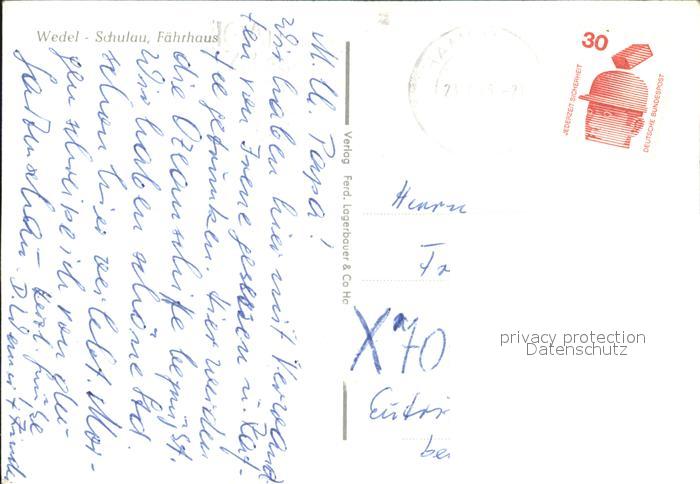 Wedel - Schulau, Fährhaus
M. lb. Papa!
Wir haben hier mit Verwand-
ten von Irene gesessen u. Kaf-
fee getrunken. Hier werden
die Ozeanschiffe begrüßt.
Wir haben schöne
schon hier verlebt. Mor-
gen schreibe ich von der
Gartenschau. Herzl. Grüße
D. u. Kinder
Verlag Ferd. Lagerbauer & Co Ha
30
JEDERZEIT SICHERHEIT
DEUTSCHE BUNDESPOST
Herrn
Fr
X 70
Eutin
bei
privacy protection
Datenschutz